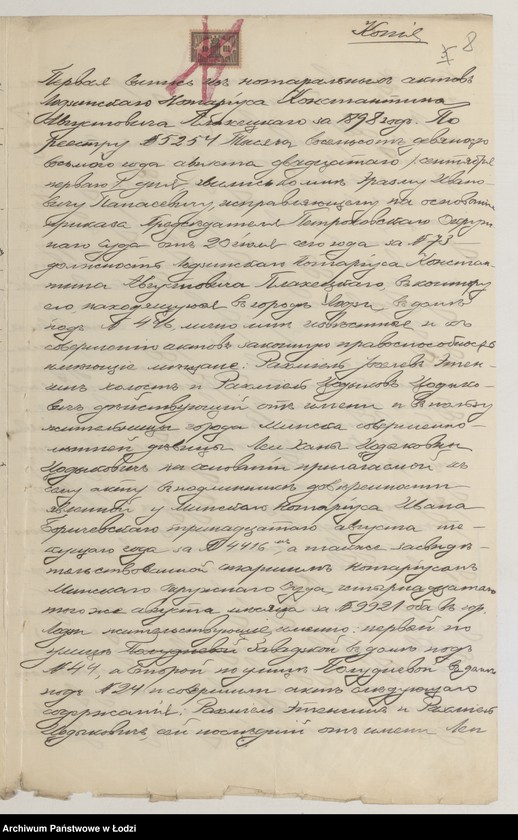 Копія
8
Первая выпись изъ нотаріальныхъ актовъ
Лодзинскаго Нотаріуса Константина
Августовича Плахецкаго за 1898 годъ. По
реестру № 5254 Тысяча восемьсотъ девяносто
восьмого года августа двадцатаго / сентября
перваго дня, явились ко мнѣ Ивано-
вичу исправляющему на основаніи
приказа Предсѣдателя Петроковскаго Окруж-
наго Суда отъ 20 іюля сего года за № 73
должность Лодзинскаго Нотаріуса Констан-
тина Августовича Плахецкаго, въ контору
его, находящуюся въ городѣ Лодзи въ домѣ
подъ № 446, лично мнѣ извѣстные и къ
совершенію актовъ законную правоспособность
имѣющіе мѣщане: Рахміель
холостъ и Рахміель
дѣйствующій отъ имени и въ пользу
жительницы города Минска совершенно-
лѣтней дѣвицы Леи Ханы
на основаніи прилагаемой къ
сему акту въ подлинникѣ довѣренности
явленной у Минскаго Нотаріуса Ивана
тринадцатаго августа те-
кущаго года за № 4416, а также засвидѣ-
тельствованной старшимъ нотаріусомъ
Минскаго Окружнаго Суда четырнадцатаго
того же августа мѣсяца за № 9921 оба въ гор.
Лодзи жительствующіе, именно: первый по
улицѣ въ домѣ подъ
№ 44, а второй по улицѣ Полуднёвой въ домѣ
подъ № 24 и совершили актъ слѣдующаго
содержанія: Рахміель и Рахміель
сей послѣдній отъ имени Леи
Archiwum Państwowe w Łodzi